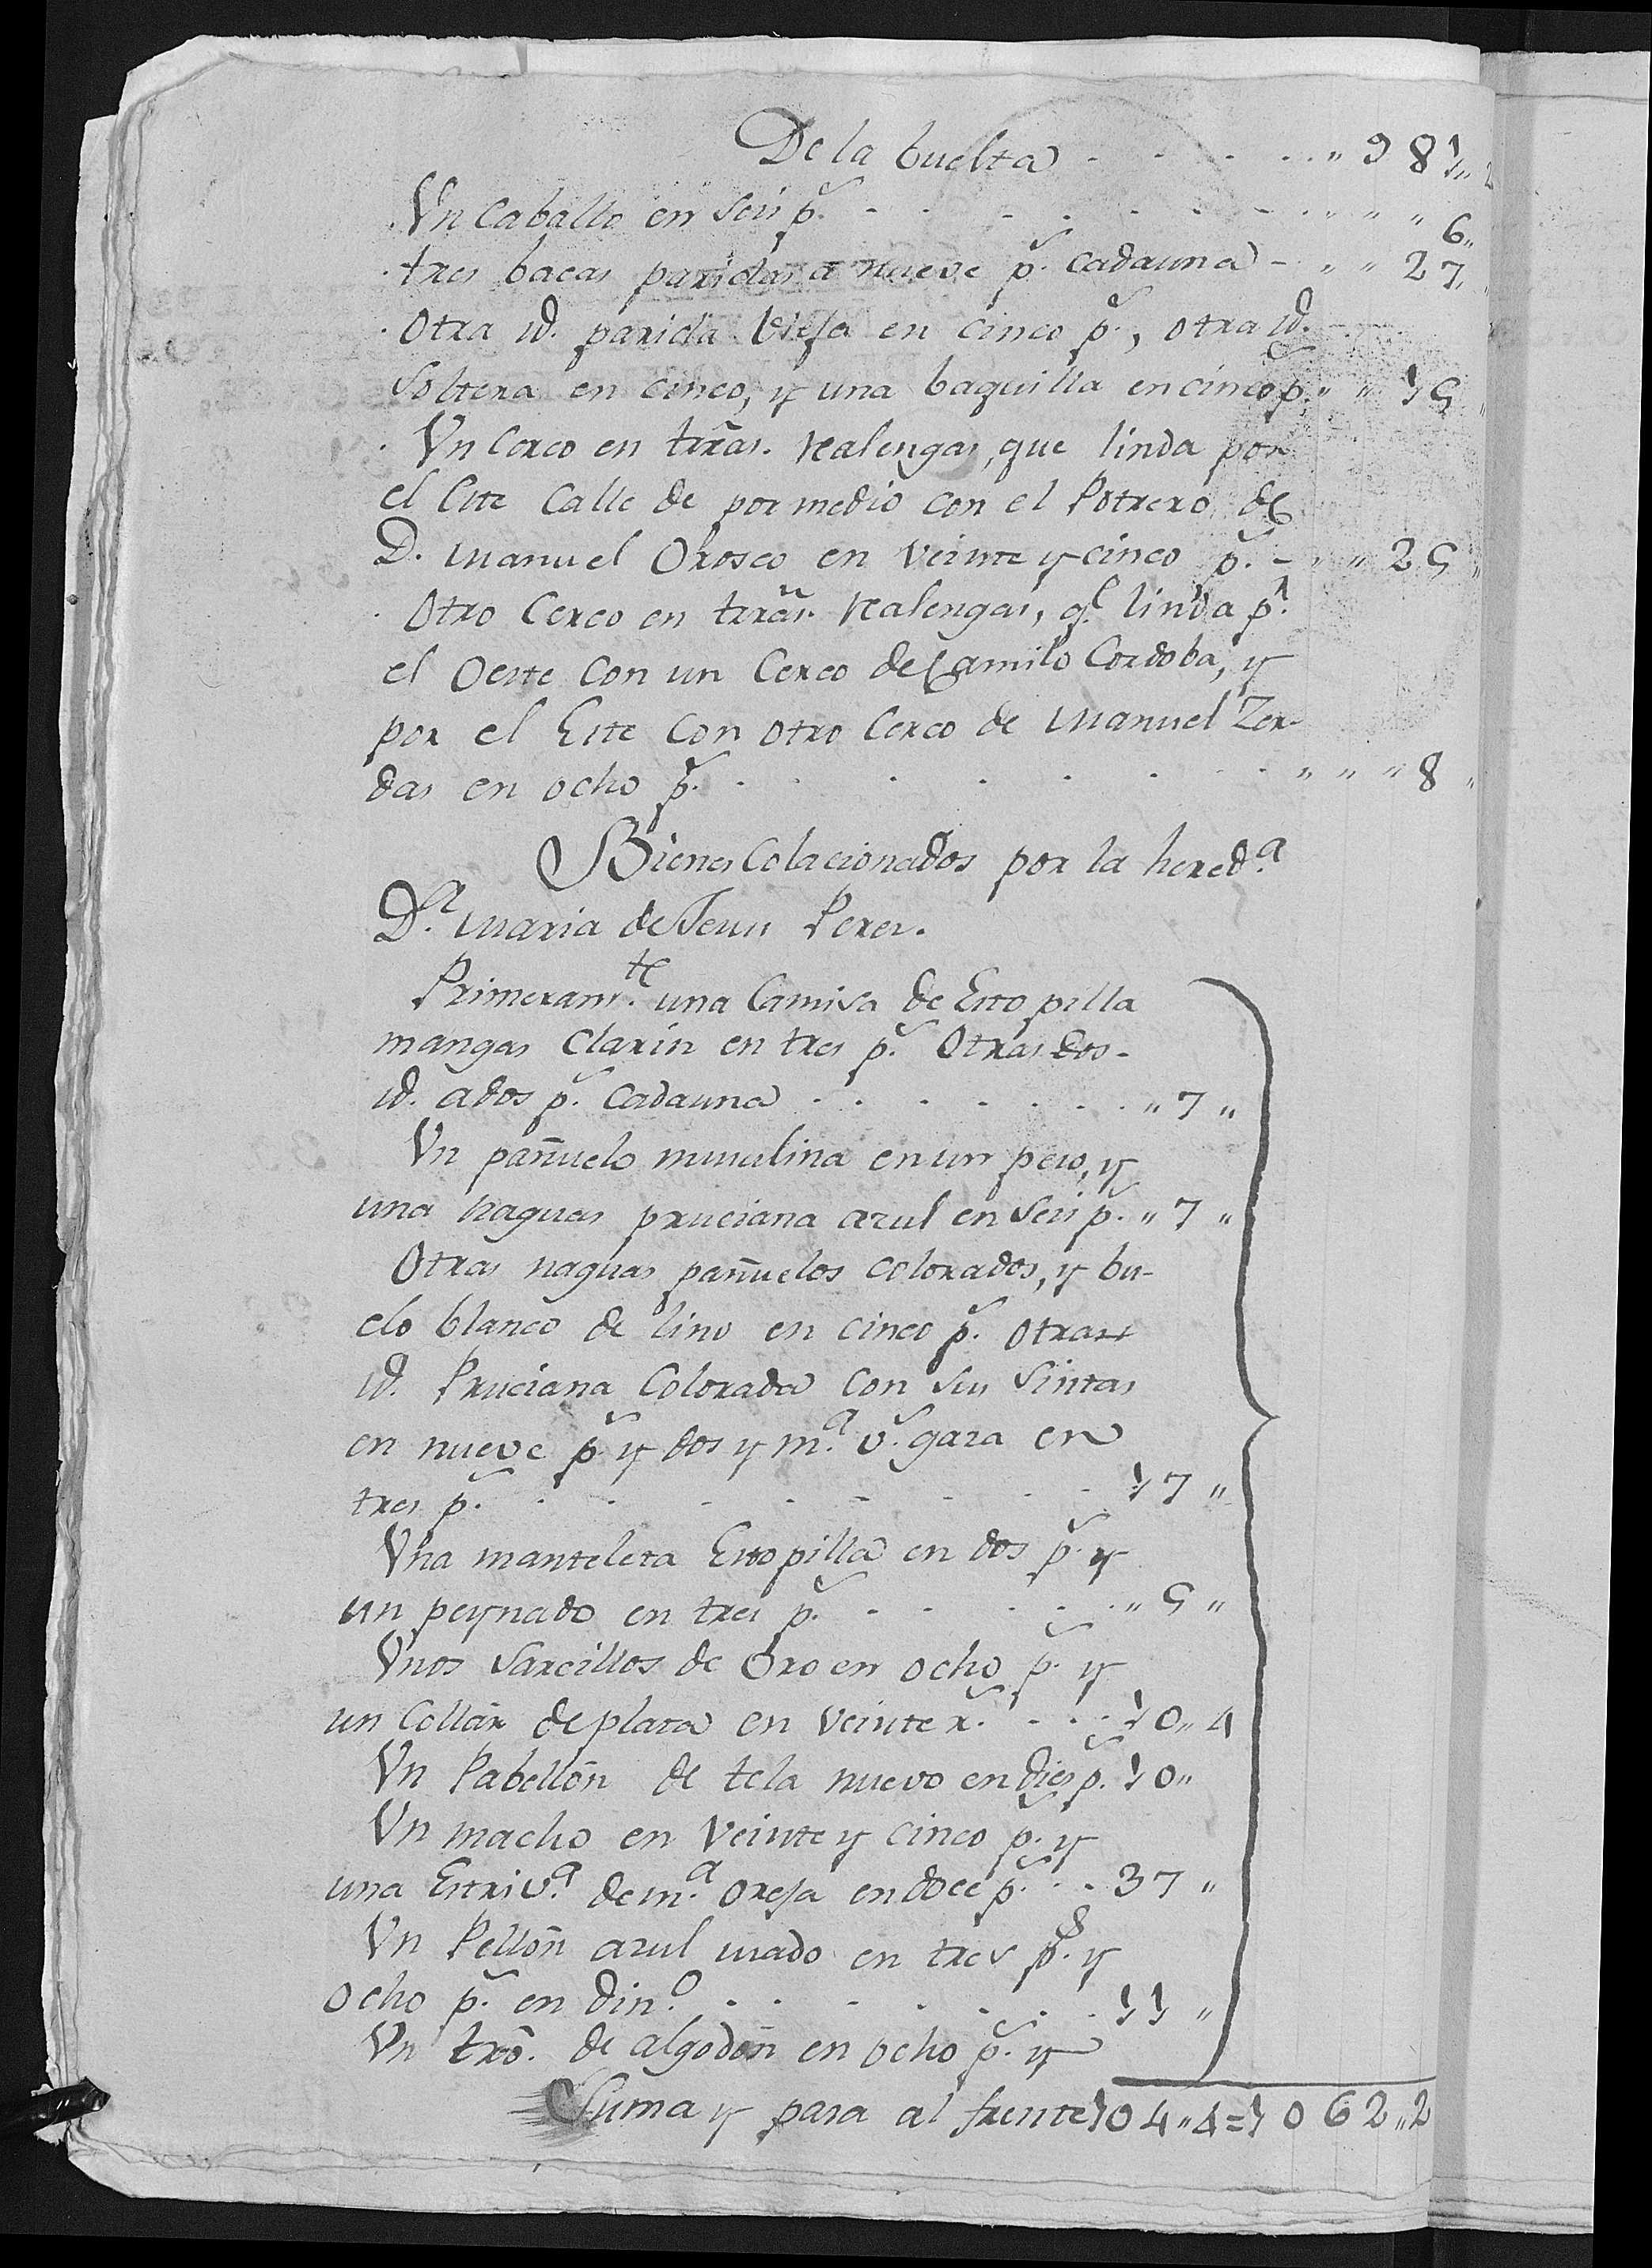 De la buelta - - - - - " 981" 2
Un Caballo en Seis p.s - - - - - - - " " " 6"
tres bacas paridas a nueve p.s cadauna - " " 27"
Otra id. parida vieja en cinco p.s, otra id.
Soltera en cinco, y una baquilla en cinco p.s " " 15 "
Un Cerco en trrās. Realengas, que linda por
el Este Calle de por medio con el Potrero de
D. Manuel Orosco en veinte y cinco p.s - " " 25 "
Otro Cerco en trrās. Realengas, q.e linda p.r
el Oeste Con un Cerco de Camilo Cordoba, y
por el Este Con otro Cerco de Manuel Zer-
das en ocho p.s - - - - - - - " " " 8 "
Bienes Colacionados por la hered.a
D.a Maria de Jesus Peres.
Primeram.te una Camisa de Estopilla
mangas Clarin en tres p.s Otras dos -
id. ados p.s cadauna - - - - - - - " 7 "
Un pañuelo musulina en un peso, y
una naguas pruciana azul en Seis p.s " 7 "
Otras naguas pañuelos colorados, y bu-
elo blanco de lino en cinco p.s otras
id. Pruciana Colorada con sus Sintas
en nueve p.s y dos y m.a v.s gaza en
tres p.s - - - - - - - - 17 "
Una manteleta Estopilla en dos p.s y
un peynado en tres p.s - - - - - " 5 "
Unos Sarcillos de Oro en ocho p.s y
un Collar de plata en veinte r.s - - - 10" 4
Un Pabellōn de tela nuevo en dies p.s 10"
Un macho en veinte y cinco p.s y
una Estriv.a de m.a oreja en doce p.s - - 37 "
Un Pellōn azul usado en tres p.s y
ocho p.s en din.o - - - - - - - 11 "
Un trō. de algodōn en ocho p.s y
Suma y pasa al frente 104"4=1062"2